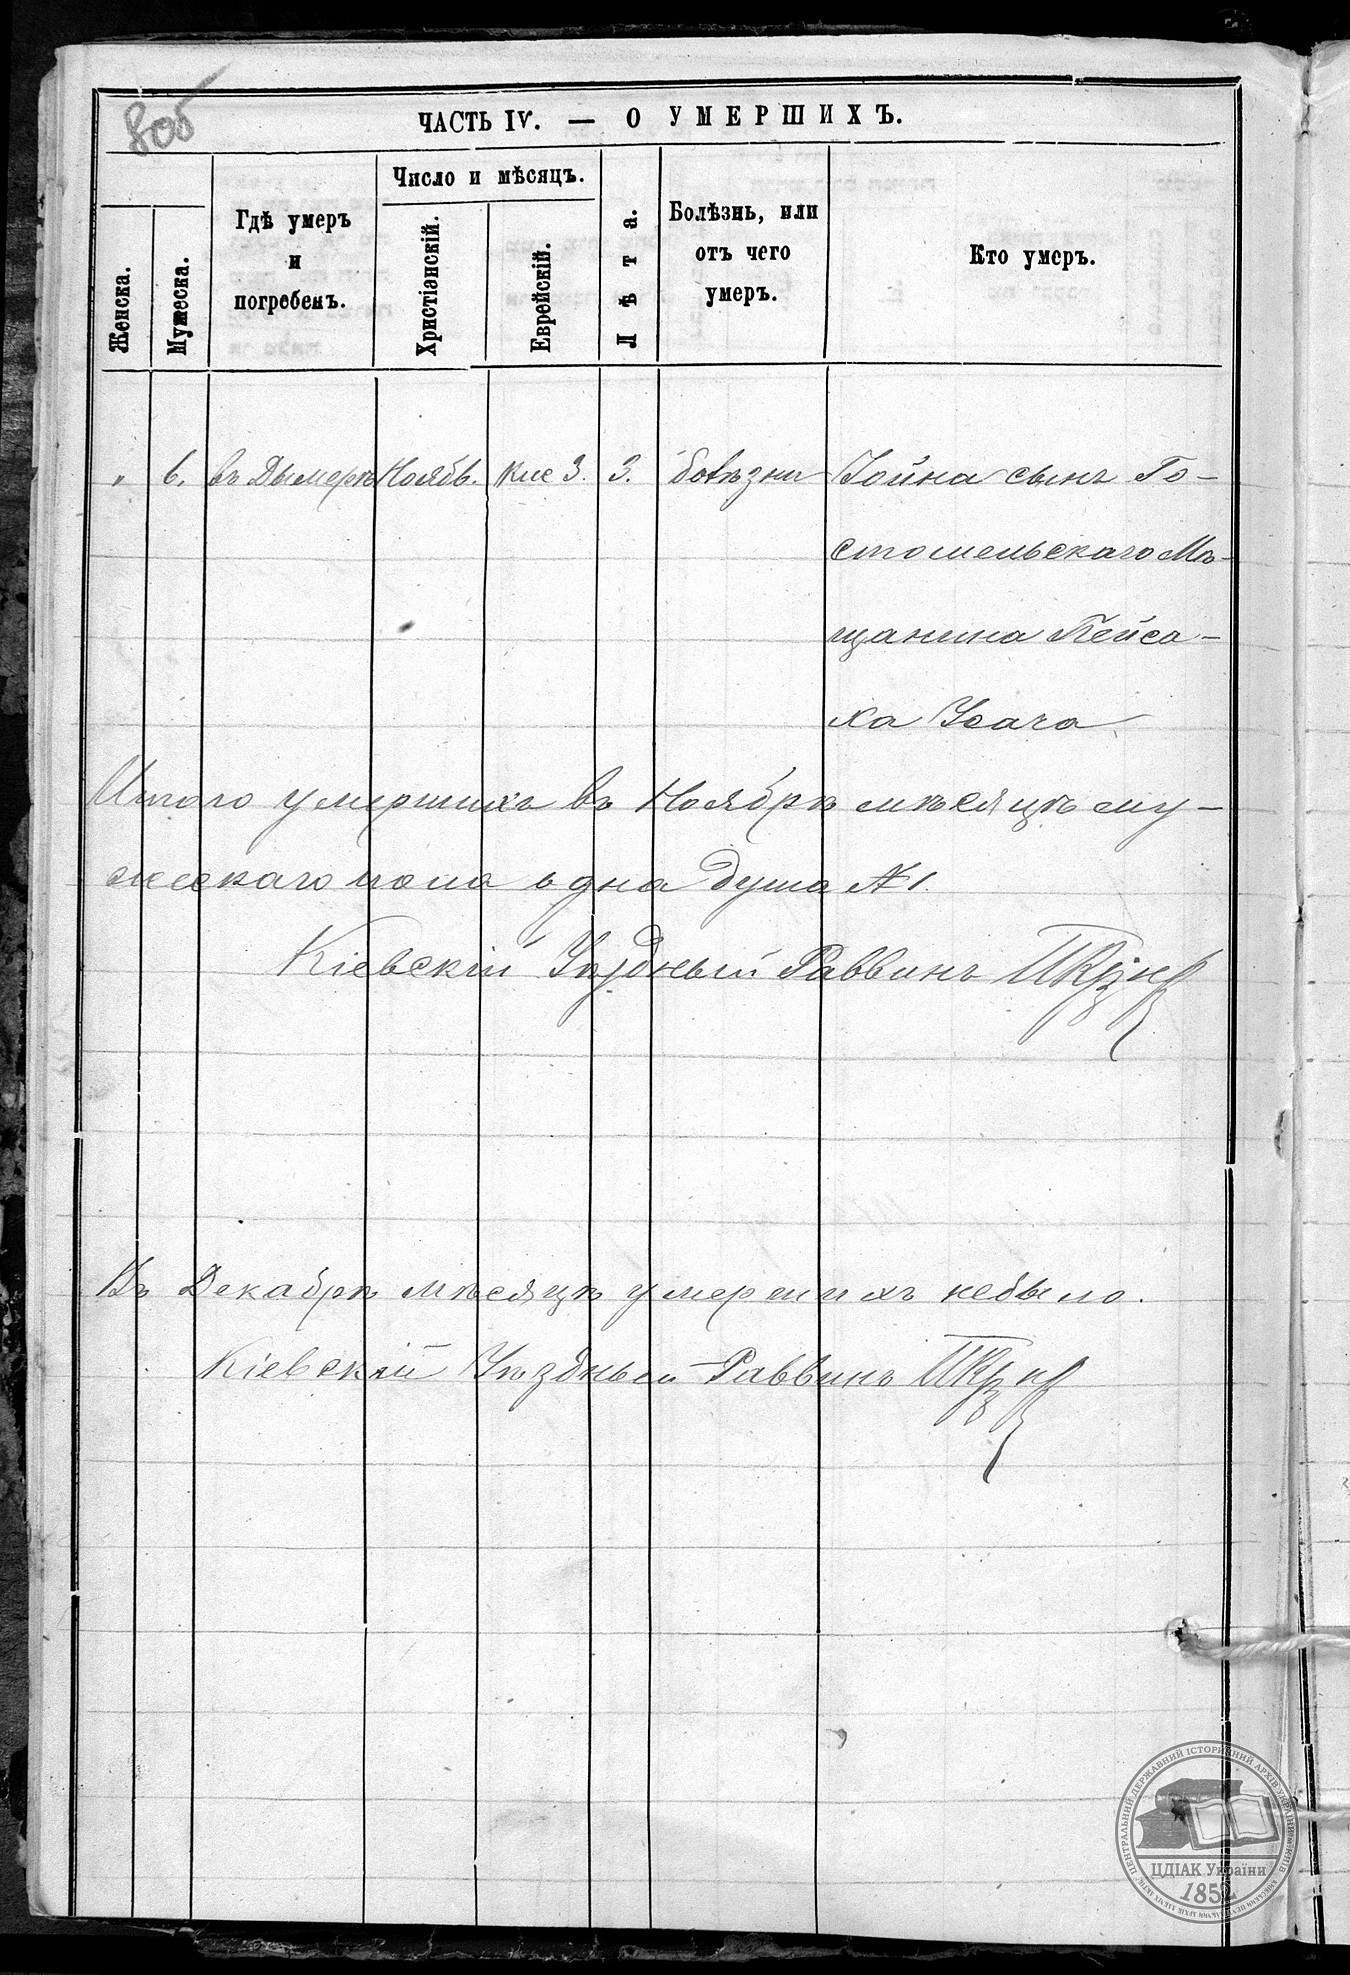 805
ЧАСТЬ IV. — О УМЕРШИХЪ.
Женска.
Мужеска.
Гдѣ умеръ
и
погребенъ.
Число и мѣсяцъ.
Христіэнскій.
Еврейскій.
Лѣта.
Болѣзнь, или
отъ чего
умеръ.
Кто умеръ.
„ 6. въ Дымерѣ Ноябв. Кис 3. 3. болѣзни Іойна сынъ Го-
стомельскаго Мѣ-
щанина Пейса-
ха Усача
Итого умершихъ въ Ноябрѣ мѣсяцѣ му-
жескаго пола одна душа №1.
Кіевскій Уѣздный Раввинъ
Въ Декабрѣ мѣсяцѣ умершихъ небыло.
Кіевскій Уѣздный Раввинъ
ЦЕНТРАЛЬНИЙ ДЕРЖАВНИЙ ІСТОРИЧНИЙ АРХІВ УКРАЇНИ М.КИЇВ
ЦДІАК України
1852